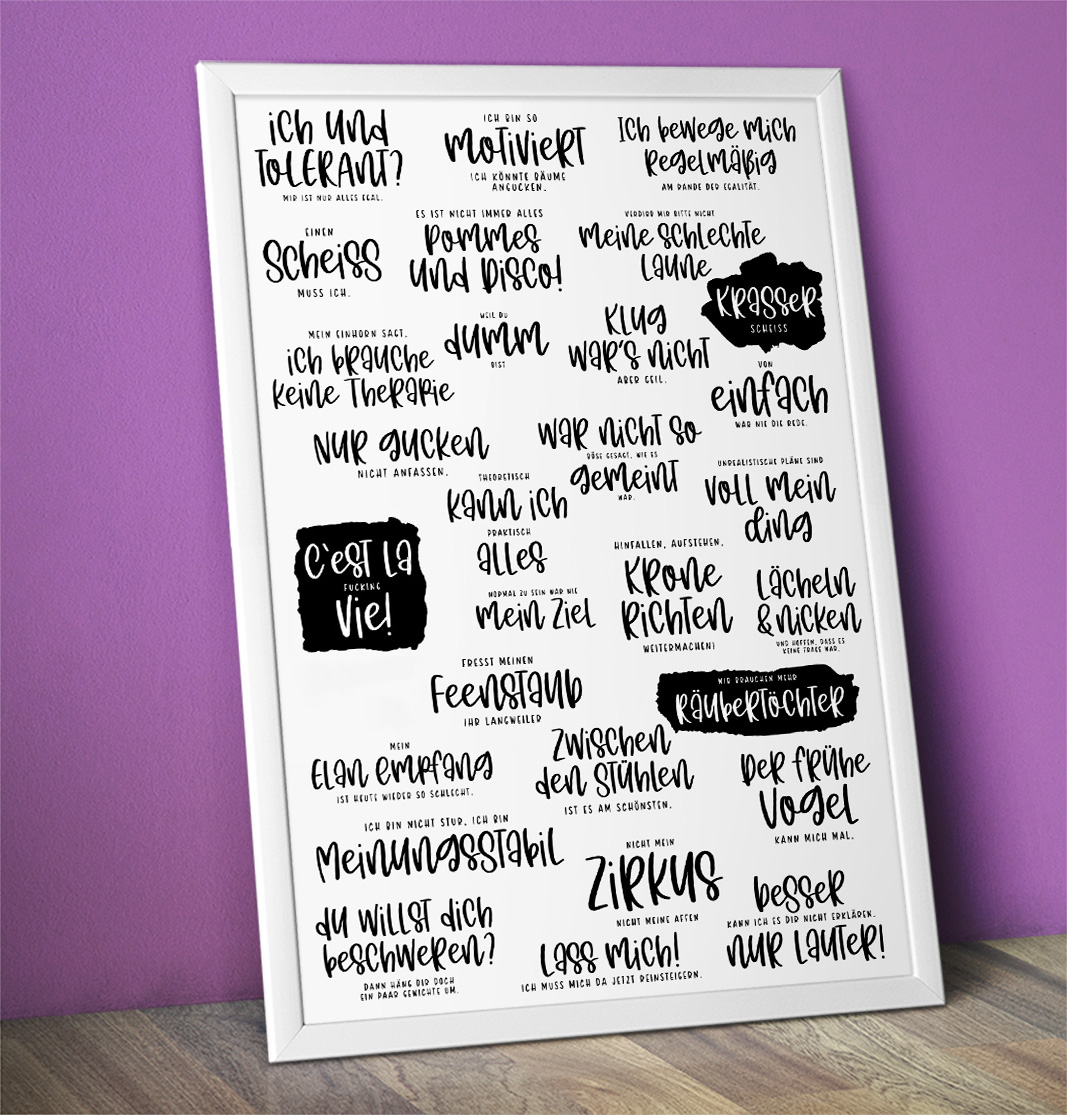 ich und
TOLERANT?
MIR IST NUR ALLES EGAL.
ICH BIN SO
MOTIVIERT
ICH KÖNNTE BÄUME
ANGUCKEN.
Ich bewege mich
Regelmäßig
AM RANDE DER EGALITÄT.
EINEN
Scheiss
MUSS ICH.
ES IST NICHT IMMER ALLES
Pommes
und Disco!
VERDIRB MIR BITTE NICHT
meine schlechte
Laune
KRASSER
SCHEISS
MEIN EINHORN SAGT,
ich brauche
keine Therapie
WEIL DU
dumm
BIST
Klug
war's nicht
ABER GEIL.
VON
einfach
WAR NIE DIE REDE.
Nur gucken
NICHT ANFASSEN.
war nicht so
BÖSE GESAGT, WIE ES
gemeint
WAR.
THEORETISCH
kann ich
PRAKTISCH
alles
UNREALISTISCHE PLÄNE SIND
voll mein
ding
C`est la
FUCKING
Vie!
NORMAL ZU SEIN WAR NIE
mein Ziel
HINFALLEN, AUFSTEHEN,
Krone
Richten
WEITERMACHEN!
Lächeln
& nicken
UND HOFFEN, DASS ES
KEINE FRAGE WAR.
FRESST MEINEN
Feenstaub
IHR LANGWEILER
WIR BRAUCHEN MEHR
RÄUBERTÖCHTER
MEIN
Elan empfang
IST HEUTE WIEDER SO SCHLECHT.
Zwischen
den Stühlen
IST ES AM SCHÖNSTEN.
Der frühe
Vogel
KANN MICH MAL.
ICH BIN NICHT STUR, ICH BIN
Meinungsstabil
NICHT MEIN
ZIRKUS
NICHT MEINE AFFEN
besser
KANN ICH ES DIR NICHT ERKLÄREN.
nur lauter!
du willst dich
beschweren?
DANN HÄNG DIR DOCH
EIN PAAR GEWICHTE UM.
Lass mich!
ICH MUSS MICH DA JETZT REINSTEIGERN.